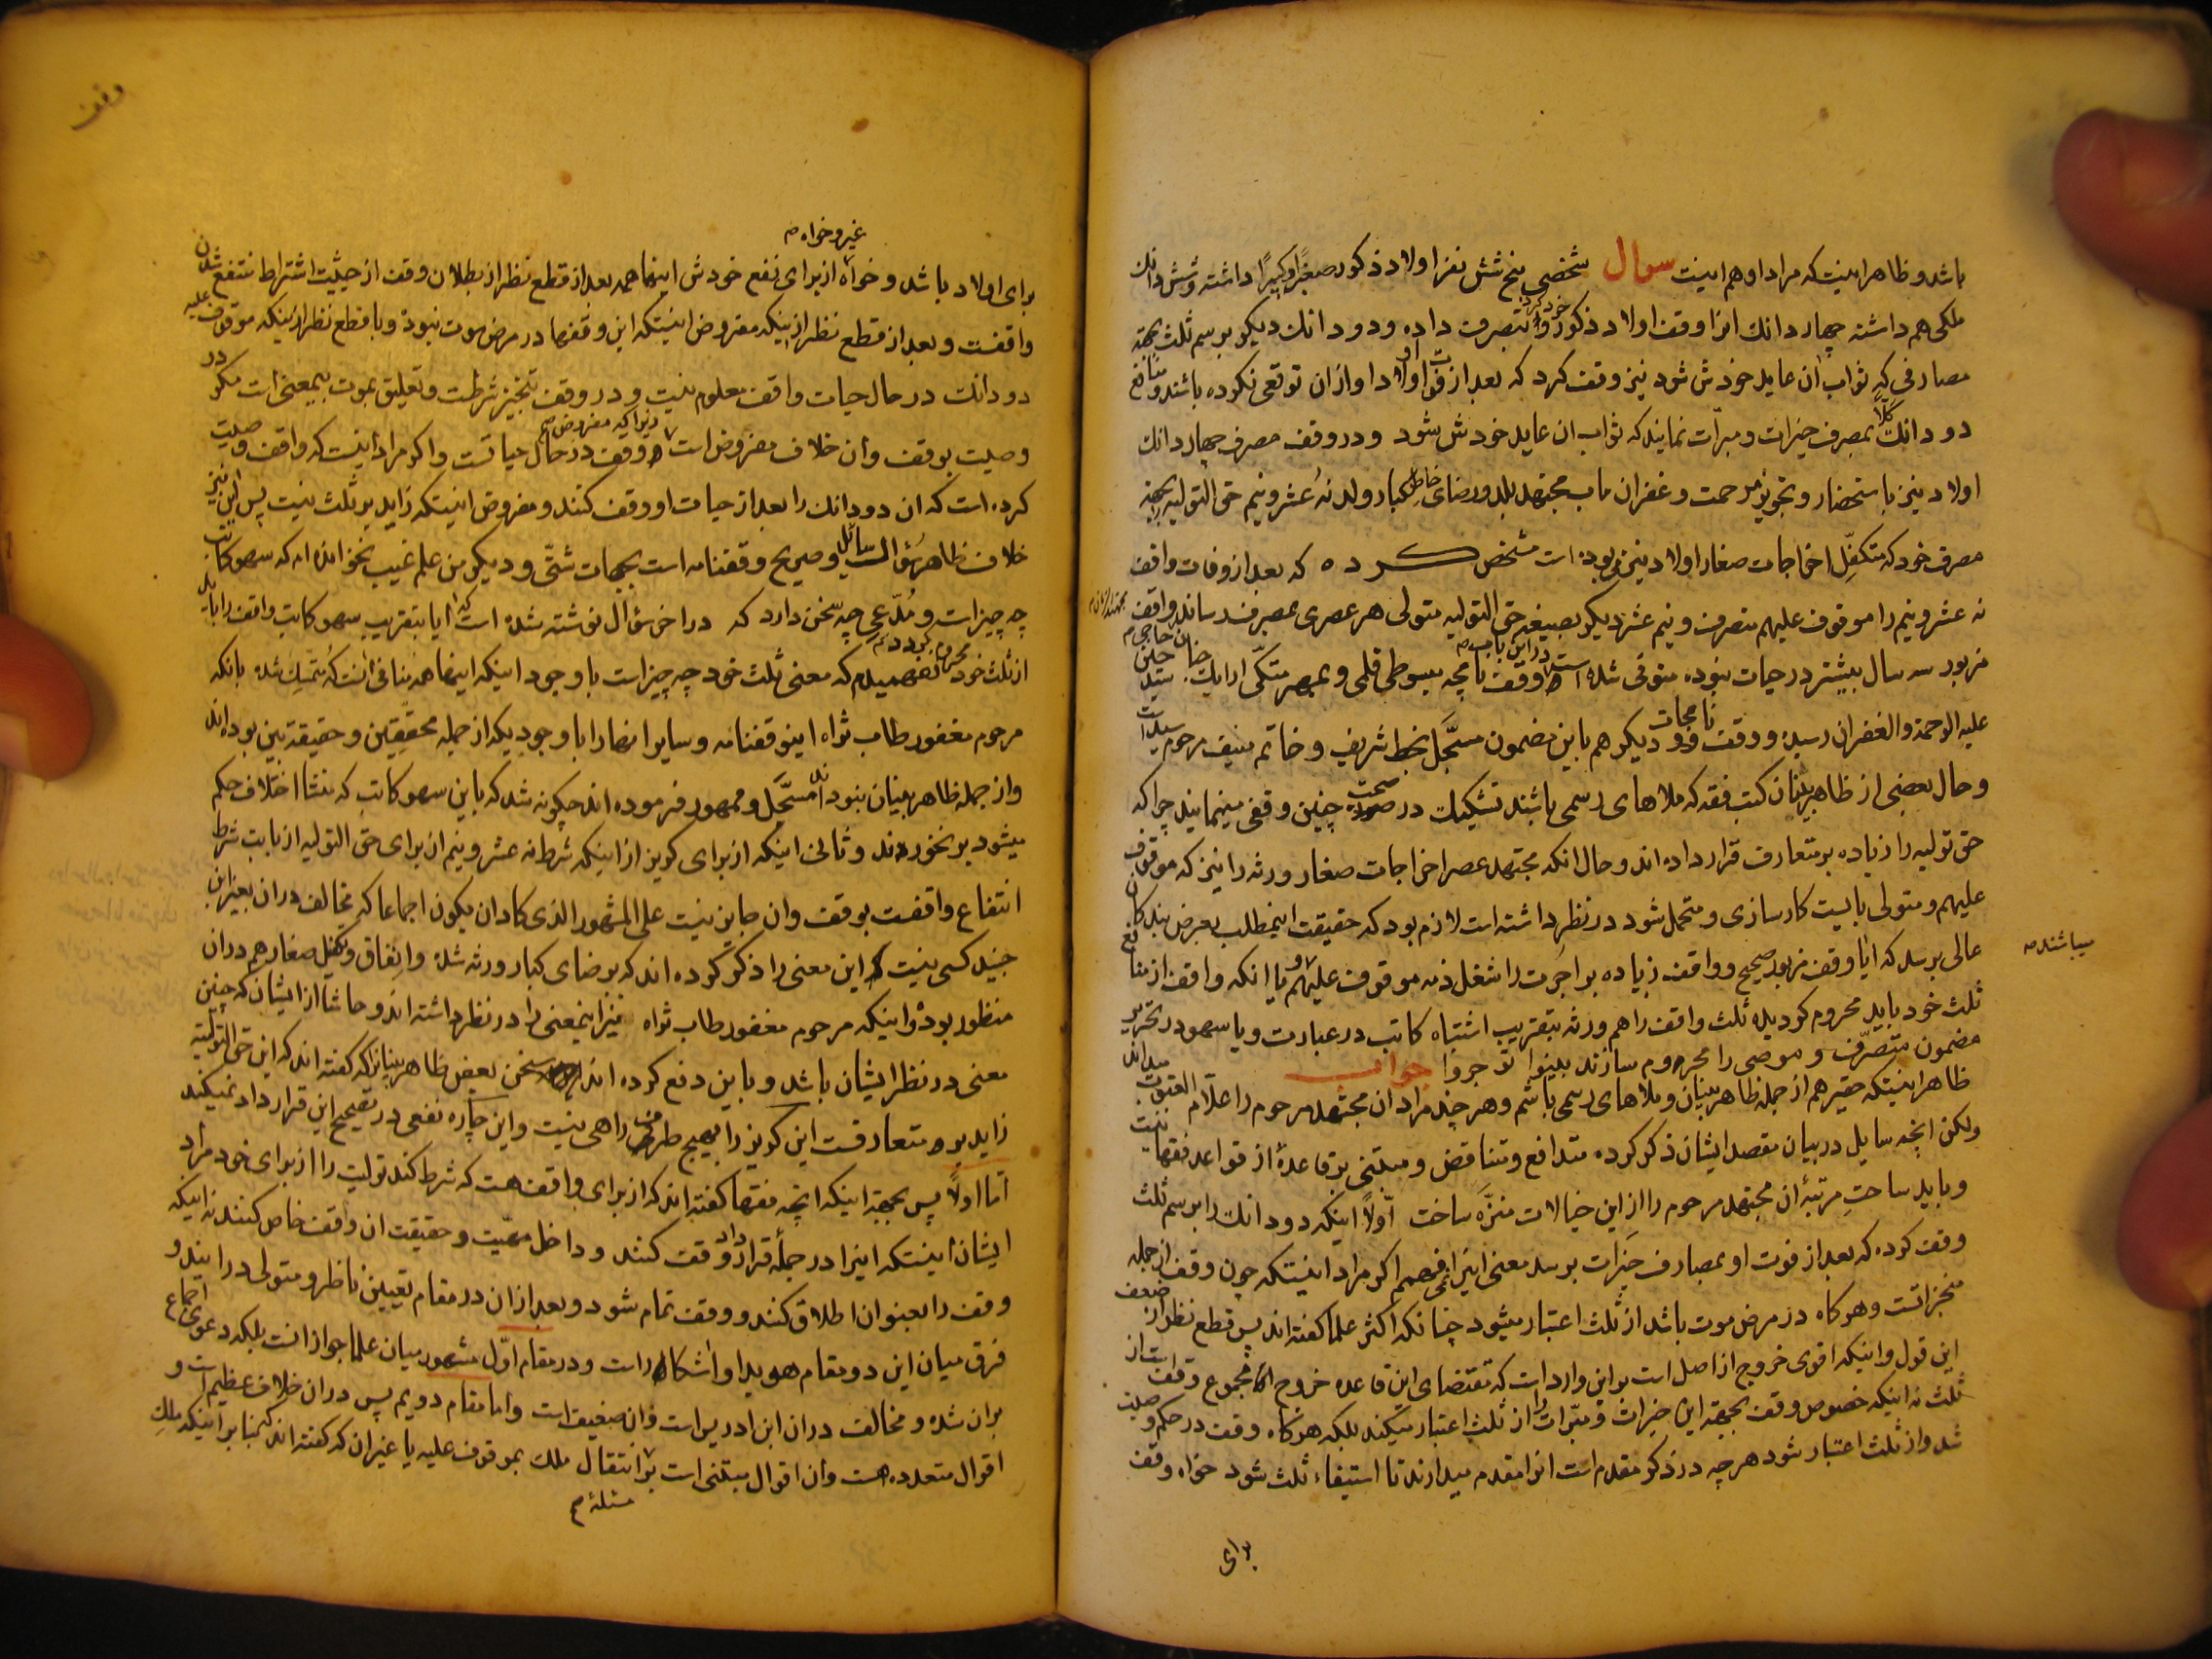 باشد و ظاهر اینست که مراد او هم اینست سوال شخصی پنج شش نفر اولاد ذکور صغیرا و کبیرا داشته و شش دانک
ملکی هم داشته چهار دانک انرا وقف اولاد ذکور خود کرده و بتصرف داده و دو دانک دیکر بر سم ثلث بجهة
مصارفی که ثواب ان عاید خودش شود نیز وقف کرد که بعد از فوت او اولاد او ازان توقعی نکرده باشند و منافع
دو دانک کلا بمصرف خیرات و مبرات نمایند که ثواب ان عاید خودش شود و در وقف مصرف چهار دانک
اولاد نیز با ستحضار و تجویز مرحمت و غفران ماب مجتهد بلد و رضای خاطر کبار ولد نه عشر و نیم حق التولیه بجهة
مصرف خود که متکفل اخراجات صغار اولاد نیز بوده است مشخص کرده که بعد از وفات واقف
نه عشر و نیم را موقوف علیهم متصرف و نیم عشر دیکر بصیغه حق التولیه متولی هر عصری بمصرف رساند و واقف
مزبور سه سال بیشتر در حیات نبوده متوفی شده است و در این باب وقف نامچه مبسوطی قلمی و بمهر متکی ارایک جناب حاجی سید
علیه الرحمة والغفران رسیده و وقف نامجات دیکر هم باین مضمون مسجل بخط شریف و خاتم منیف مرحوم سید است
و حال بعضی از ظاهر بینان کتب فقه که ملاهای رسمی باشند تشکیک در صحت چنین وقفی مینمایند چرا که
حق تولیه را زیاده بر متعارف قرار داده اند و حال انکه مجتهد عصر اخراجات صغار ورثه را نیز که موقوف
علیهم و متولی بایست کارسازی و متحمل شود در نظر داشته است لازم بود که حقیقت اینمطلب بعرض بندکان
عالی برسد که ایا وقف مزبور صحیح و واقف زیاده بر اجرت را شغل ذمه موقوف علیهم و یا انکه واقف از منافع
میباشند صه
ثلث خود باید محروم کردیده ثلث واقف را هم ورثه بتقریب اشتباه کاتب در عبارت و یا سهو در تحریر
مضمون متصرف و موصی را محروم سازند بینوا توجروا جواب
ظاهرا اینستکه حقیر هم از جمله ظاهر بینان و ملاهای رسمی باشم و هر چند مراد ان مجتهد مرحوم را علام الغیوب میداند
ولکن انچه سایل در بیان مقصد ایشان ذکر کرده متدافع و متناقض و مبتنی بر قاعدهٔ از قواعد فقها نیست
و باید ساحت مرتبهٔ ان مجتهد مرحوم را از این خیالات منزه ساخت اولا اینکه دو دانک را بر سم ثلث
وقف کرده که بعد از فوت او بمصارف خیرات برسد معنی انرا نمی فهمم اکر مراد اینستکه چون وقف از جمله
منجزاتست و هر کاه در مرض موت باشد از ثلث اعتبار میشود چنانکه اکثر علما کفته اند پس قطع نظر از ضعف
این قول و اینکه اقوی خروج از اصل است بر این وارد است که مقتضای این قاعده خروج مجموع وقف است از
ثلث نه اینکه خصوص وقف بجهة این خیرات و مبرات را از ثلث اعتبار میکند بلکه هر کاه وقف در حکم وصیت
شد و از ثلث اعتبار شود هر چه در ذکر مقدم است انرا مقدم میدارند تا استیفاء ثلث شود خواه وقف
برای
وقف
غیر و خواه م
برای اولاد باشد و خواه از برای نفع خودش اینها همه بعد از قطع نظر از بطلان وقف از حیثیت اشتراط منتفع شدن
واقفست و بعد از قطع نظر از اینکه مفروض اینستکه این وقفها در مرض موت نبوده و با قطع نظر از اینکه موقوف علیه در
دو دانک در حال حیات واقف معلوم نیست و در وقف تنجیز شرطست و تعلیق بموت بیمعنی است مکر
وصیت بوقف و ان خلاف مفروض است زیرا که مفروض وقف در حال حیاتست و اکر مراد اینست که واقف وصیت
کرده است که ان دو دانک را بعد از حیات او وقف کنند و مفروض اینستکه زاید بر ثلث نیست پس این نیز
خلاف ظاهر سؤال سائل و صریح وقفنامه است بجهات شتی و دیکر من علم غیب نخوانده ام که سهو کاتب
چه چیز است و مدعی چه سخن دارد که در اخر سؤال نوشته شده است که ایا بتقریب سهو کاتب واقف را باید
از ثلث خود محروم کرد نفهمیدم که معنی ثلث خود چه چیز است با وجود اینکه اینها همه منافی انست که متمسک شده بانکه
مرحوم مغفور طاب ثراه اینوقفنامه و سایر انها را با وجودیکه از جمله محققین و حقیقة بین بوده اند
و از جمله ظاهر بینان نبوده اند مسجل و ممهور فرموده اند چکونه شد که باین سهو کاتب که منشا اختلاف حکم
میشود بر نخوردند و ثانی اینکه از برای کریز از اینکه شرط نه عشر و نیم از برای حق التولیه از بابت شرط
انتفاع واقفست بوقف و ان جایز نیست علی المشهور الذی کاد ان یکون اجماعا که مخالف در ان بغیر این
جنید کسی نیست این معنی را ذکر کرده اند که برضای کبار ورثه شده و انفاق و تکفل صغار هم در ان
منظور بوده و اینکه مرحوم مغفور طاب ثراه نیز اینمعنی را در نظر داشته اند و حاشا از ایشان که چنین
معنی در نظر ایشان باشد و باین دفع کرده اند سخن بعض ظاهر بینانرا که کفته اند که این حق التولیه
زاید بر متعارفست این کریز را بهیچ طرف راهی نیست و این چاره نفعی در تصحیح این قرار داد نمیکند
اما اولا پس بجهة اینکه انچه فقها کفته اند که از برای واقف هست که شرط کند تولیت را از برای خود مراد
ایشان اینستکه اینرا در جملهٔ قرار داد وقف کنند و داخل مهیت و حقیقت ان وقف خاص کنند نه اینکه
وقف را بعنوان اطلاق کنند و وقف تمام شود و بعد ازان در مقام تعیین ناظر و متولی در ایند و
فرق میان این دو مقام هویدا و اشکار است و در مقام اول مشهور میان علما جواز انست بلکه دعوی اجماع
بران شده و مخالف در ان ابن ادریس است و ان ضعیف است و اما مقام دویم پس در ان خلاف عظیم است و
اقوال متعدده هست و ان اقوال مبتنی است بر انتقال ملک بموقوف علیه یا غیر ان که کفته اند که بنا بر اینکه ملک
مسئلهٔ م